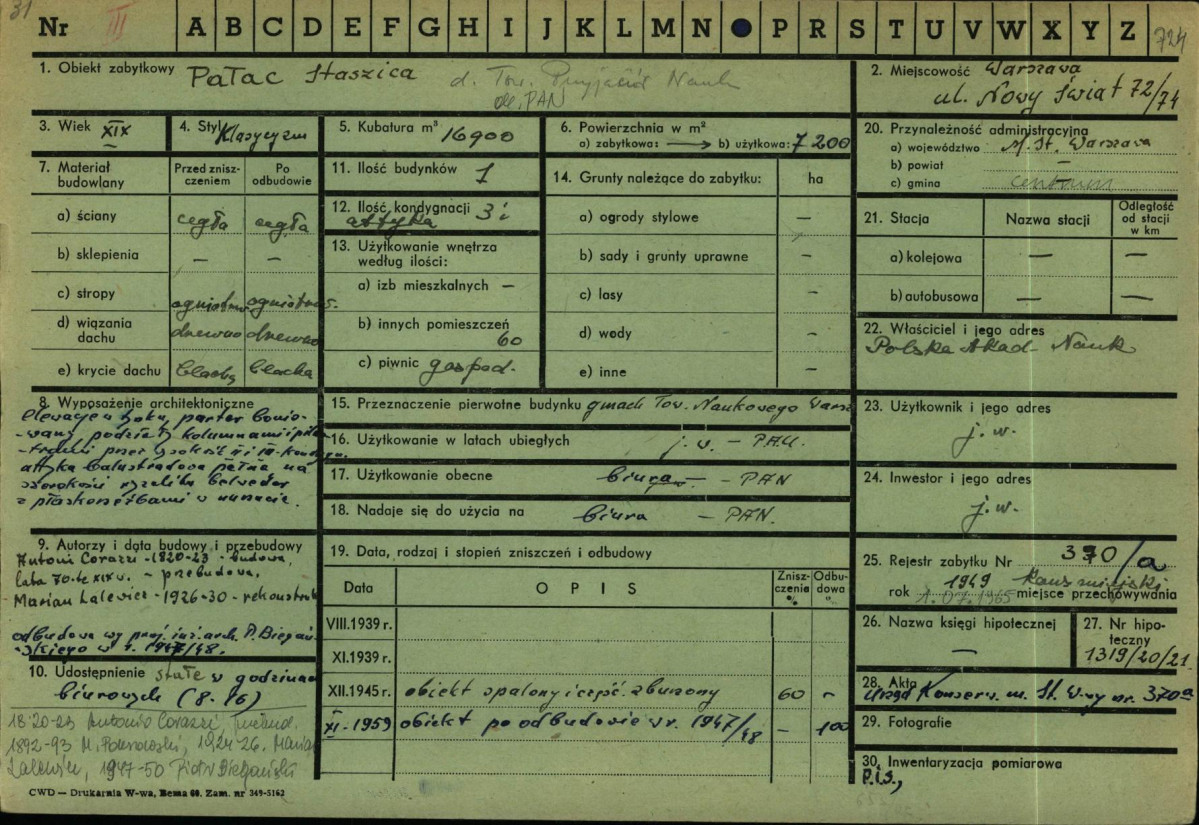 31
Nr III A B C D E F G H I J K L M N P R S T U V W X Y Z 724
1. Obiekt zabytkowy Pałac Staszica d. Tow. Przyjaciół Nauk
ob. PAN
2. Miejscowość Warszawa
ul. Nowy Świat 72/74
3. Wiek XIX
4. Styl Klasycyzm
5. Kubatura m³ 16900
6. Powierzchnia w m²
a) zabytkowa: b) użytkowa: 7 200
20. Przynależność administracyjna
a) województwo M. St. Warszawa
b) powiat —
c) gmina centrum
7. Materiał budowlany
Przed zniszczeniem
Po odbudowie
a) ściany cegła cegła
b) sklepienia — —
c) stropy ogniotrw ogniotrw.
d) wiązania dachu drewno drewno
e) krycie dachu blachy blacha
11. Ilość budynków 1
12. Ilość kondygnacji 3 i
attyka
13. Użytkowanie wnętrza
według ilości:
a) izb mieszkalnych —
b) innych pomieszczeń
60
c) piwnic gospod.
14. Grunty należące do zabytku: ha
a) ogrody stylowe —
b) sady i grunty uprawne —
c) lasy —
d) wody —
e) inne —
21. Stacja
Nazwa stacji
Odległość
od stacji
w km
a) kolejowa — —
b) autobusowa — —
22. Właściciel i jego adres
Polska Akad. Nauk
8. Wyposażenie architektoniczne
elewacje w tynku, parter bonio-
-wany podziały kolumnami i pila-
-strami przez wysokość II i III kondygn.
attyka balustradowa pełna na
szerokości ryzalitu belweder
z płaskorzeźbami w
15. Przeznaczenie pierwotne budynku gmach Tow. Naukowego Warsz
16. Użytkowanie w latach ubiegłych j. w. — PAU.
17. Użytkowanie obecne biura — PAN
18. Nadaje się do użycia na biura — PAN.
23. Użytkownik i jego adres
j. w.
24. Inwestor i jego adres
j. w.
9. Autorzy i data budowy i przebudowy
Antoni Corazzi - 1820-23 - budowa,
lata 90-te XIX w. - przebudowa,
Marian Lalewicz - 1926-30 - rekonstruk
odbudowa wg proj. inż. arch. P. Biegań-
-skiego w r. 1947/48.
10. Udostępnienie stałe w godzinach
biurowych (8-16)
18-20-23 Antonio Corazzi,
1892-93 M. Pokrowski, 1924-26. Marian
Lalewicz, 1947-50 Piotr Biegański
19. Data, rodzaj i stopień zniszczeń i odbudowy
Data OPIS Zniszczenie % Odbudowa %
VIII.1939 r.
XI.1939 r.
XII.1945 r. obiekt spalony i część. zburzony 60 —
XI.1959 obiekt po odbudowie w r. 1947/48 — 100
25. Rejestr zabytku Nr 370/a
rok 1949 Kons. miejski
1.07.1965 miejsce przechowywania
26. Nazwa księgi hipotecznej
—
27. Nr hipoteczny
1319/20/21
28. Akta
Urząd Konserw. m. St. W-wy nr. 370a
29. Fotografie
30. Inwentaryzacja pomiarowa
P.I.S.,
CWD — Drukarnia W-wa, Bema 60. Zam. nr 349-5162